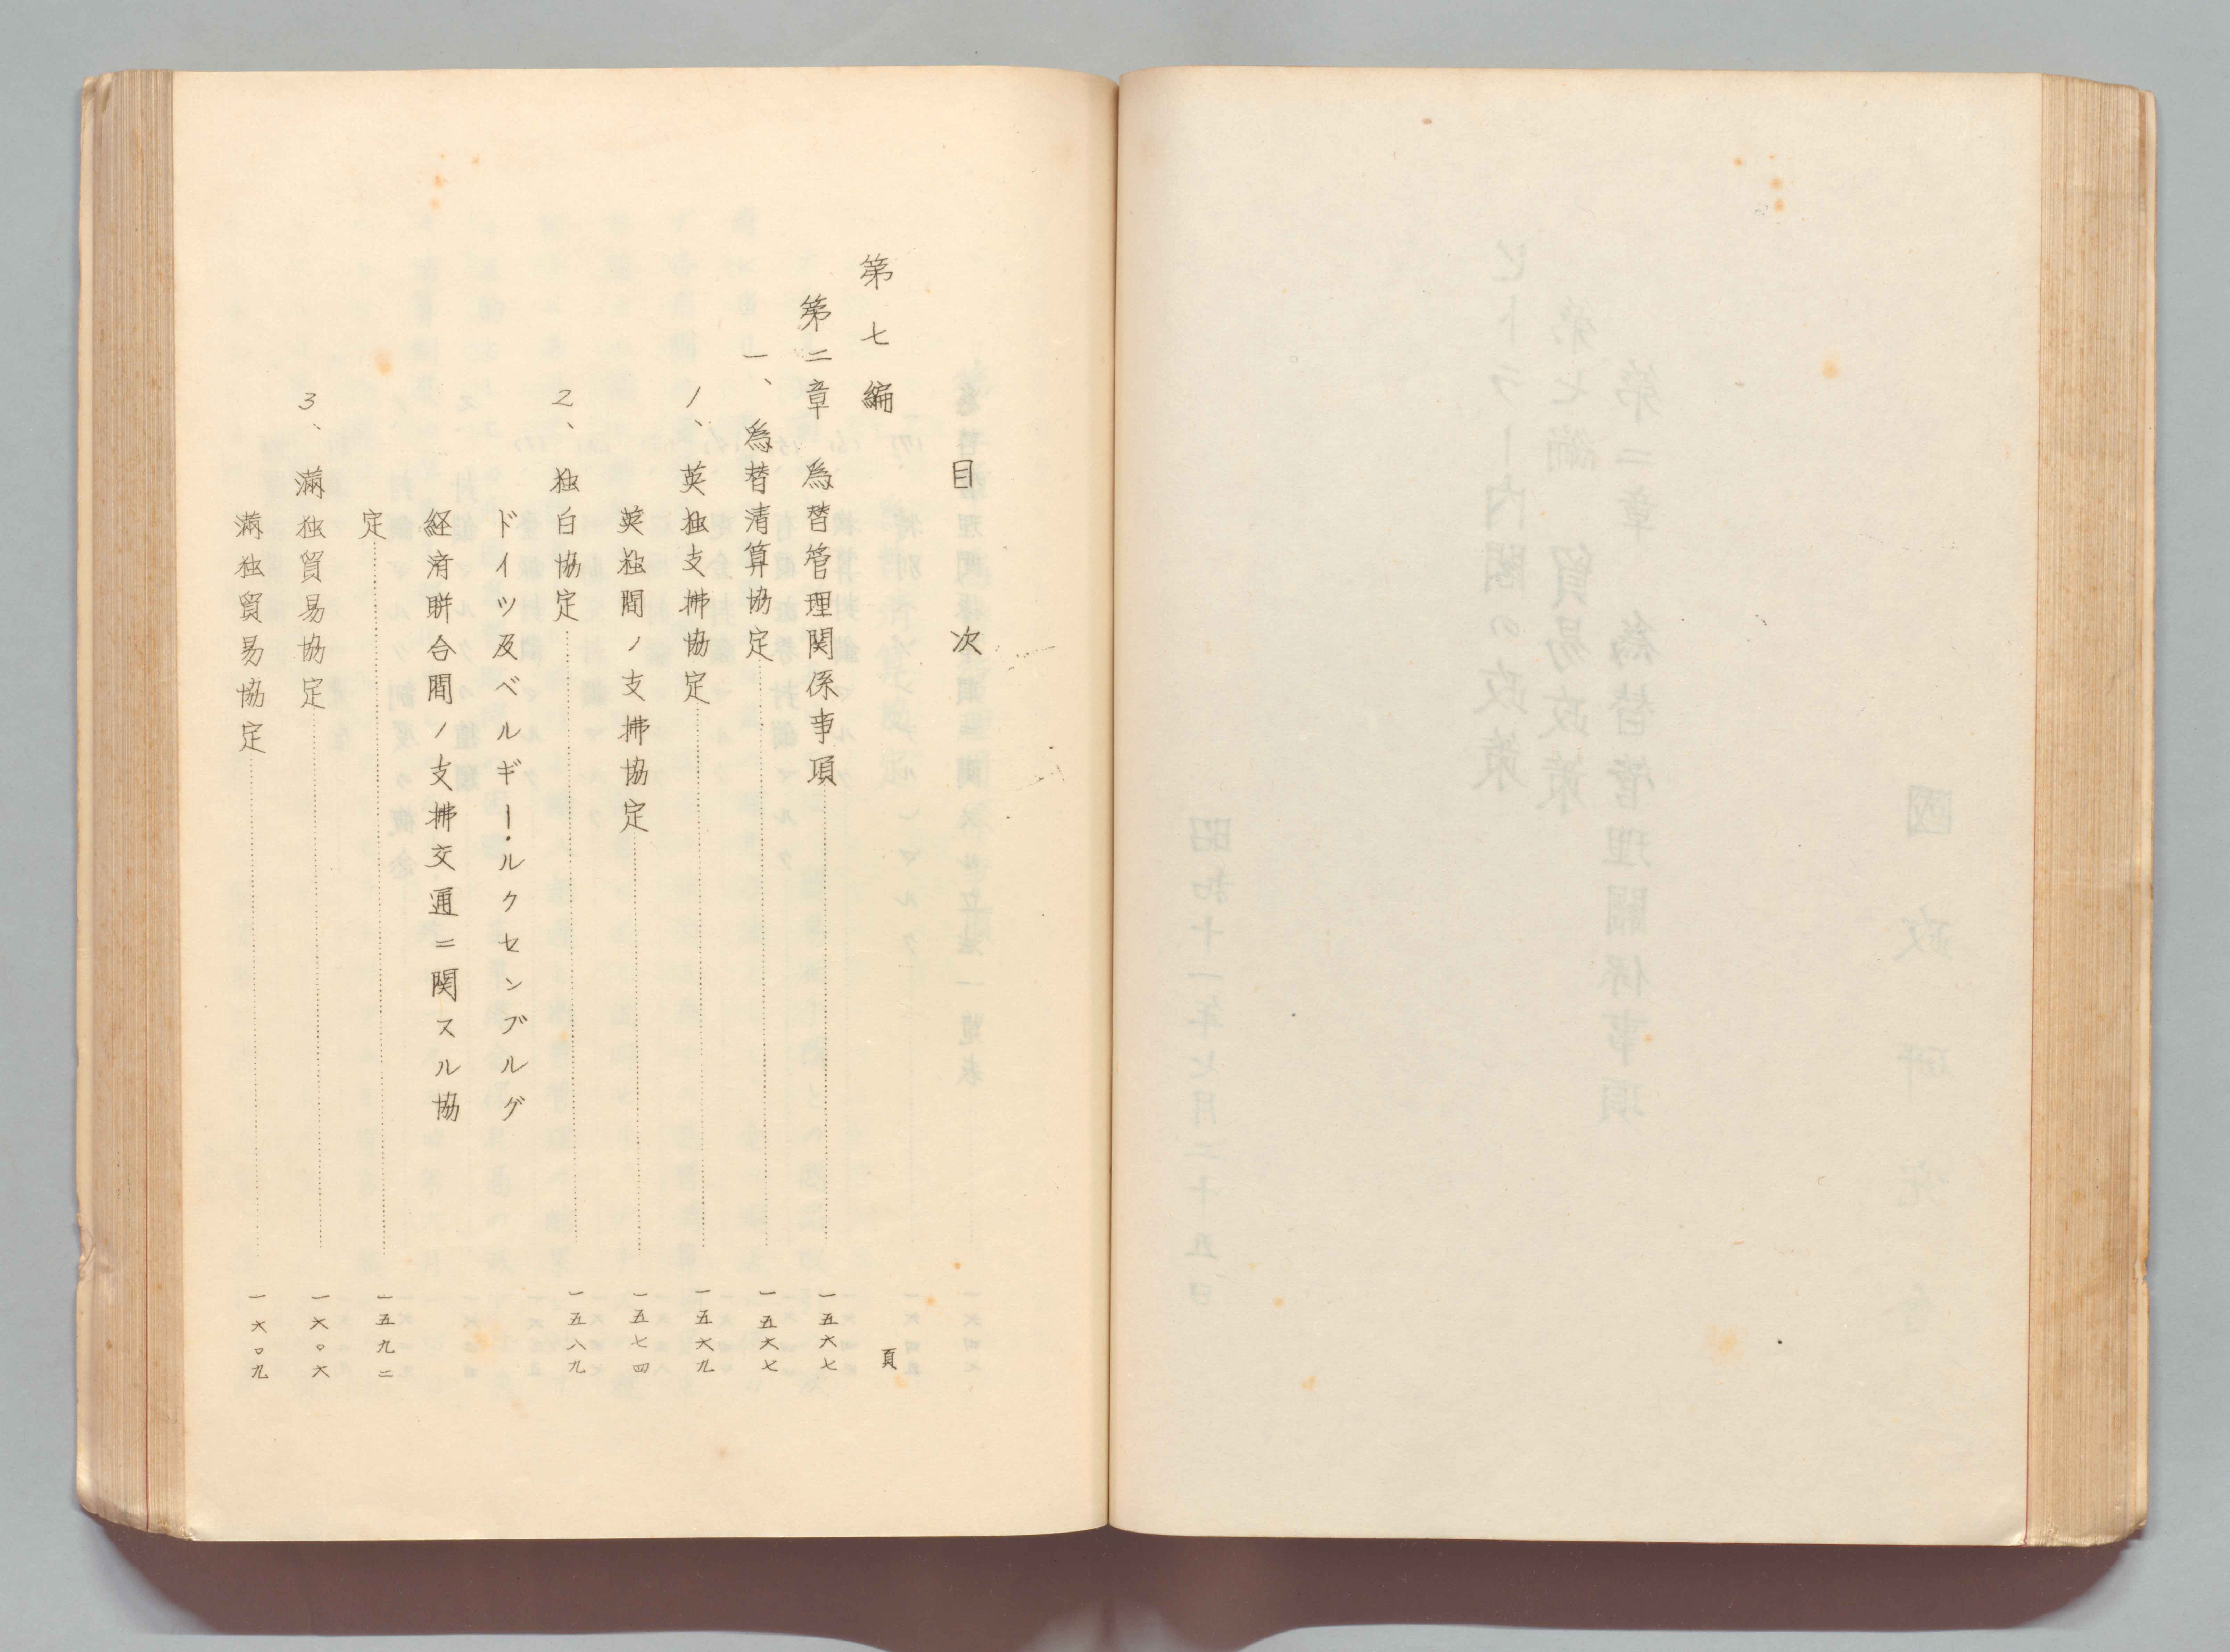 目次
頁
第七編
第二章 為替管理関係事項……一五六七
一、為替清算協定……一五六七
1、英独支拂協定……一五六九
英独間ノ支拂協定……一五七四
2、独白協定……一五八九
ドイツ及ベルギー・ルクセンブルグ
経済聯合間ノ支拂交通ニ関スル協
定……一五九二
3、滿独貿易協定……一六〇六
滿独貿易協定……一六〇九